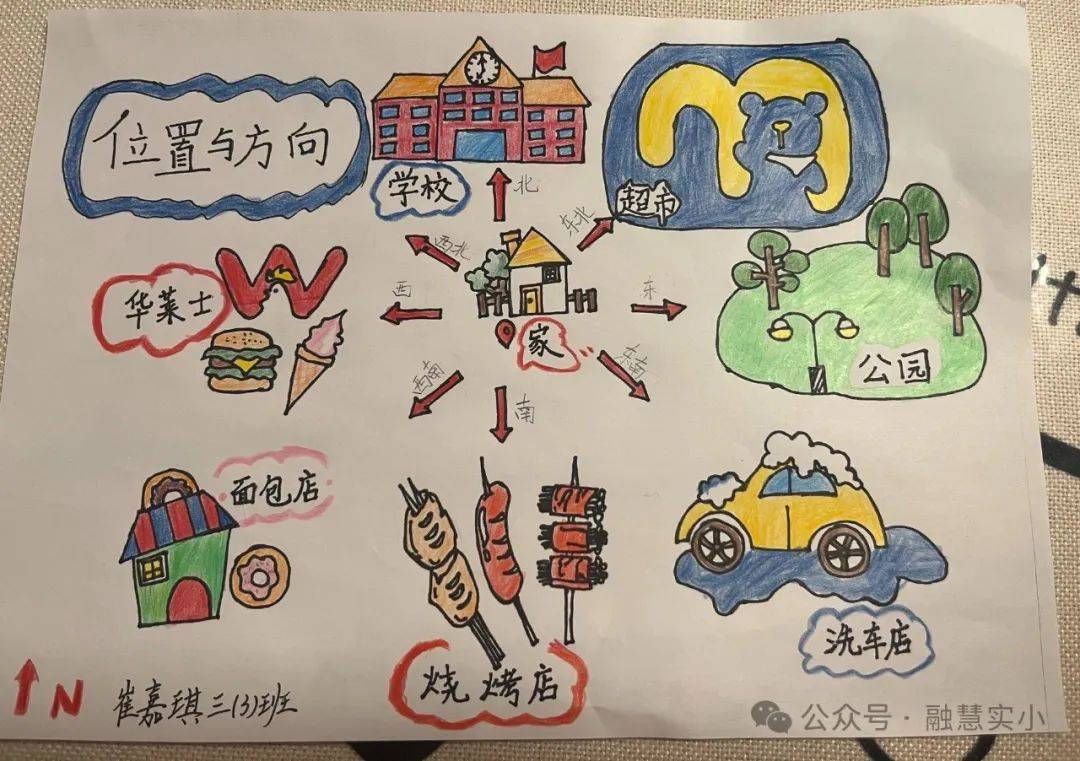 位置与方向
学校
超市
北
西北
东北
华莱士
西
东
家
公园
西南
南
东南
面包店
洗车店
烧烤店
N
崔嘉琪三(3)班
公众号·融慧实小